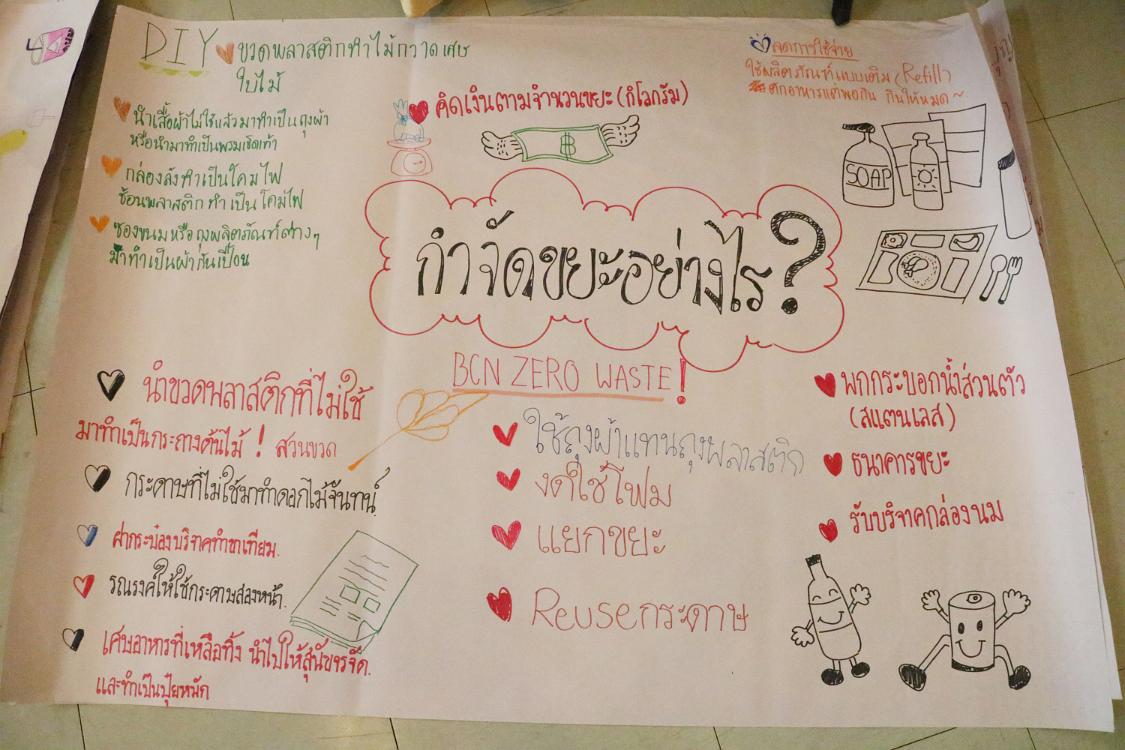 DIY ขวดพลาสติกทำไม้กวาดเศษ
ใบไม้
นำเสื้อผ้าไม่ใช้แล้วมาทำเป็นถุงผ้า
หรือนำมาทำเป็นพรมเช็ดเท้า
กล่องลังทำเป็นโคมไฟ
ช้อนพลาสติกทำเป็นโคมไฟ
ซองขนมหรือถุงผลิตภัณฑ์ต่างๆ
มาทำเป็นผ้ากันเปื้อน
คิดเงินตามจำนวนขยะ (กิโลกรัม)
฿
ลดการใช้จ่าย
ใช้ผลิตภัณฑ์แบบเติม (Refill)
ตักอาหารแต่พอกิน กินให้หมด ~
SOAP
กำจัดขยะอย่างไร?
BCN ZERO WASTE!
นำขวดพลาสติกที่ไม่ใช้
มาทำเป็นกระถางต้นไม้ ! สวนขวด
กระดาษที่ไม่ใช้มาทำดอกไม้จันทน์
ฝากระป๋องบริจาคทำขาเทียม.
รณรงค์ให้ใช้กระดาษสองหน้า.
เศษอาหารที่เหลือทิ้ง นำไปให้สุนัขจรจัด.
และทำเป็นปุ๋ยหมัก
ใช้ถุงผ้าแทนถุงพลาสติก
งดใช้โฟม
แยกขยะ
Reuseกระดาษ
พกกระบอกน้ำส่วนตัว
(สแตนเลส)
ธนาคารขยะ
รับบริจาคกล่องนม